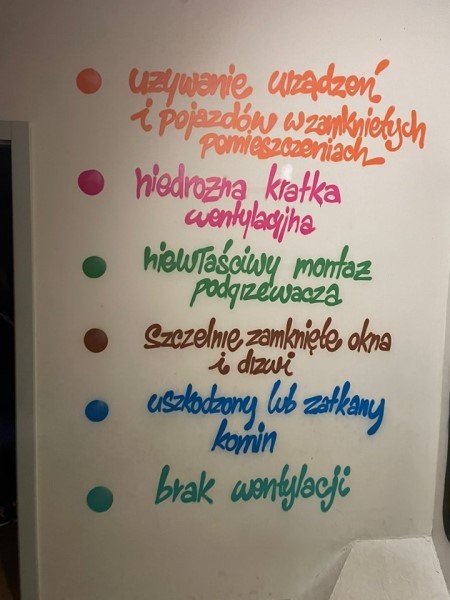 używanie urządzeń
i pojazdów w zamkniętych
pomieszczeniach
niedrożna kratka
wentylacyjna
niewłaściwy montaż
podgrzewacza
szczelnie zamknięte okna
i drzwi
uszkodzony lub zatkany
komin
brak wentylacji